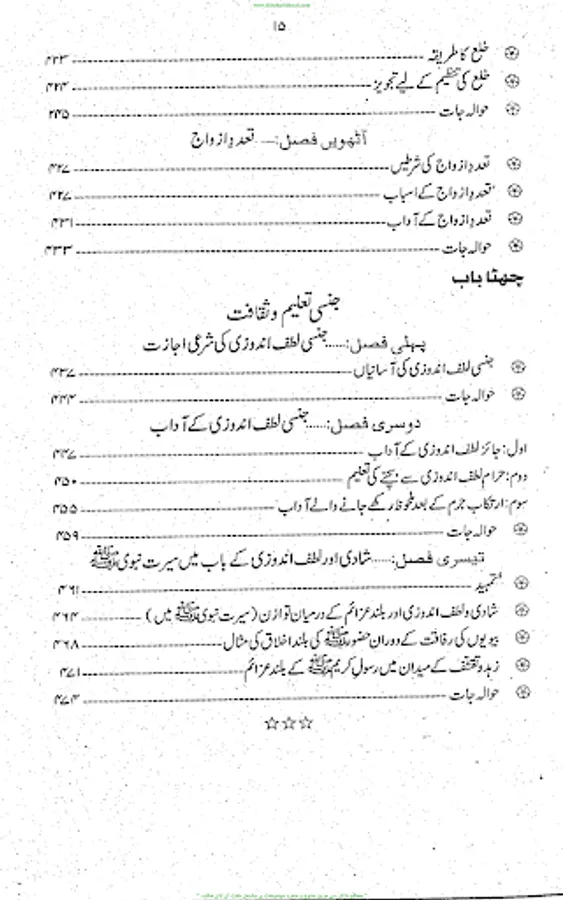 ۱۵
خلع کا طریقہ ۴۲۳
خلع کی تنظیم کے لیے تجویز ۴۲۴
حوالہ جات ۲۴۵
آٹھویں فصل:— تعددِ ازواج
تعددِ ازواج کی شرطیں ۴۲۷
تعددِ ازواج کے اسباب ۴۲۷
تعددِ ازواج کے آداب ۴۳۱
حوالہ جات ۴۳۳
چھٹا باب
جنسی تعلیم و ثقافت
پہلی فصل:..... جنسی لطف اندوزی کی شرعی اجازت
جنسی لطف اندوزی کی آسانیاں ۴۳۷
حوالہ جات ۴۴۴
دوسری فصل:..... جنسی لطف اندوزی کے آداب
اول: جائز لطف اندوزی کے آداب ۴۴۷
دوم: حرام لطف اندوزی سے بچنے کی تعلیم ۴۵۰
سوم: ارتکاب جرم کے بعد ملحوظ رکھے جانے والے آداب ۴۵۵
حوالہ جات ۴۵۹
تیسری فصل:..... شادی اور لطف اندوزی کے باب میں سیرت نبوی ﷺ
تمہید ۴۶۱
شادی و لطف اندوزی اور بلند عزائم کے درمیان توازن (سیرت نبوی ﷺ میں) ۴۶۴
بیویوں کی رفاقت کے دوران حضور ﷺ کی بلند اخلاق کی مثال ۴۶۸
زہد و تقشف کے میدان میں رسول کریم ﷺ کے بلند عزائم ۴۷۱
حوالہ جات ۴۷۴
☆☆☆